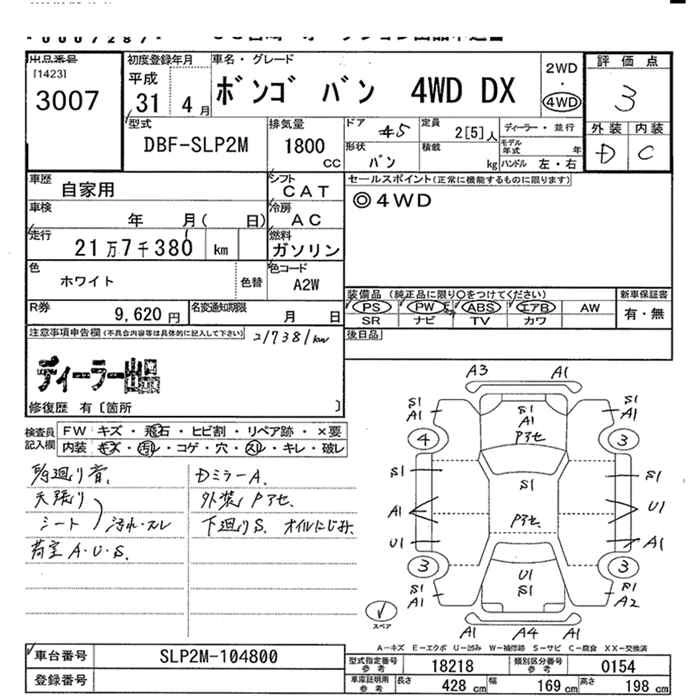 出品番号
[1423]
3007
初度登録年月
平成
31 4月
車名・グレード
ボンゴ バン 4WD DX
2WD
・
4WD
評価点
3
外装 内装
D C
型式
DBF-SLP2M
排気量
1800
CC
ドア
45
定員
2[5]人
ディーラー・並行
形状
バン
積載
kg
モデル年式
年
ハンドル 左・右
車歴
自家用
シフト
CAT
セールスポイント(正常に機能するものに限ります)
◎4WD
車検
年 月( 日)
冷房
AC
走行
21万7千380 km
燃料
ガソリン
色
ホワイト
色替
色コード
A2W
装備品(純正品に限り○をつけてください)
PS PW ABS エアB AW
SR ナビ TV カワ
新車保証書
有・無
R券
9,620円
名変通知期限
月 日
後日品
注意事項申告欄(不具合内容等は具体的に記入して下さい)
217381km
ディーラー出品
修復歴 有〔箇所 〕
検査員
記入欄
FW キズ・飛石・ヒビ割・リペア跡・×要
内装 キズ・汚レ・コゲ・穴・スレ・キレ・破レ
天張り
シート 汚れ・スレ
荷室 A・U・S.
DミラーA.
外装 Pアセ.
下廻りS. オイルにじみ.
A3 A1
S1 A1
S1 A1
S1
A1
Pアセ
4 3
S1 S1
S1
A1 U1
Pアセ.
U1 A1
3 3
U1
S1
S1 A1
S1 A2
A1 A4 A1
スペア
A-キズ E-エクボ U-凹み W-補修跡 S-サビ C-腐食 XX-交換済
車台番号
SLP2M-104800
登録番号
型式指定番号
参考
18218
類別区分番号
参考
0154
車庫証明用
参考
長さ
428 cm
幅
169 cm
高さ
198 cm